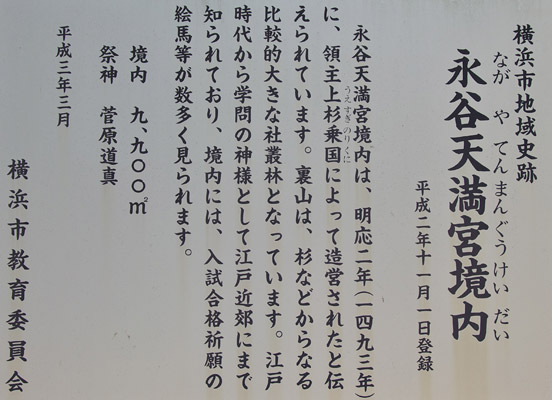 横浜市地域史跡
なが や てんまんぐうけい だい
永谷天満宮境内
平成二年十一月一日登録
永谷天満宮境内は、明応二年(一四九三年)
に、領主上杉乗国によって造営されたと伝
うえすぎのりくに
えられています。裏山は、杉などからなる
比較的大きな社叢林となっています。江戸
時代から学問の神様として江戸近郊にまで
知られており、境内には、入試合格祈願の
絵馬等が数多く見られます。
境内 九、九〇〇㎡
祭神 菅原道真
平成三年三月
横浜市教育委員会